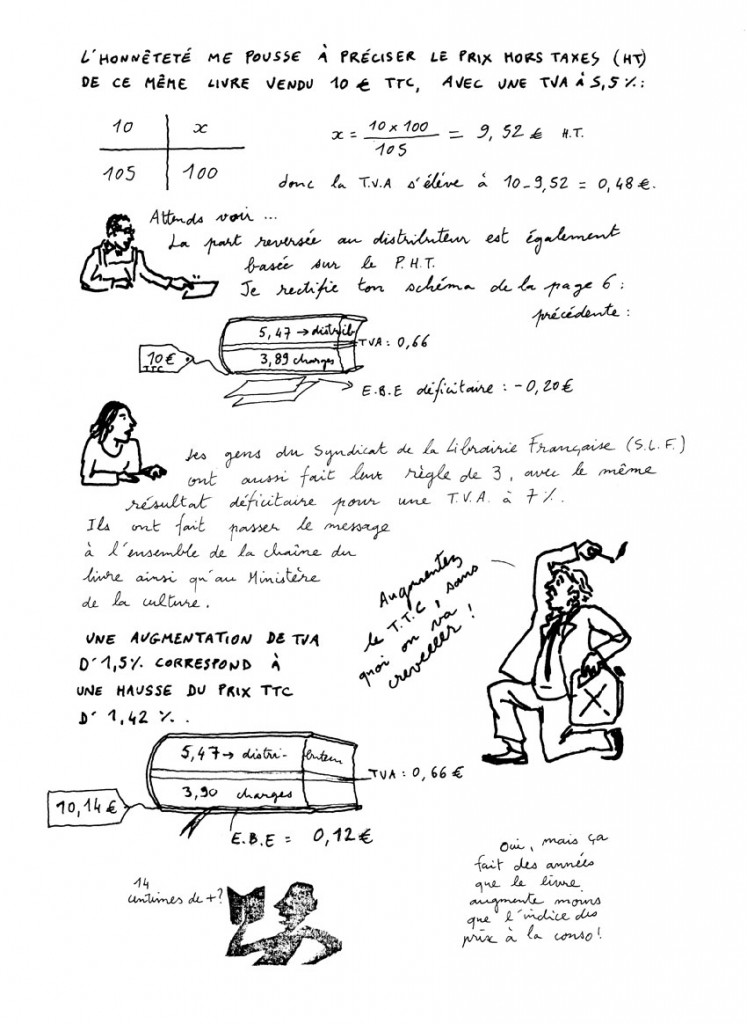 L'HONNÊTETÉ ME POUSSE À PRÉCISER LE PRIX HORS TAXES (HT)
DE CE MÊME LIVRE VENDU 10 € TTC, AVEC UNE TVA À 5,5 % :
10 x
105 100
x = 10 x 100 / 105 = 9,52 € H.T.
donc la T.V.A s'élève à 10-9,52 = 0,48 €.
Attends voir ...
La part reversée au distributeur est également
basée sur le P.H.T.
Je rectifie ton schéma de la page 6 :
précédente :
5,47 → distrib
TVA : 0,66
10 €
TTC
3,89 charges
E.B.E déficitaire : - 0,20 €
Les gens du Syndicat de la Librairie Française (S.L.F.)
ont aussi fait leur règle de 3, avec le même
résultat déficitaire pour une T.V.A. à 7 %.
Ils ont fait passer le message
à l'ensemble de la chaîne du
livre ainsi qu'au Ministère
de la culture.
Augmentez
le T.T.C, sans
quoi on va
creveeeer !
UNE AUGMENTATION DE TVA
D'1,5% CORRESPOND À
UNE HAUSSE DU PRIX TTC
D' 1,42 %.
5,47 → distri- buteur
TVA : 0,66 €
3,90 charges
10,14 €
E.B.E = 0,12 €
14
centimes de + ?
Oui, mais ça
fait des années
que le livre
augmente moins
que l'indice des
prix à la conso !